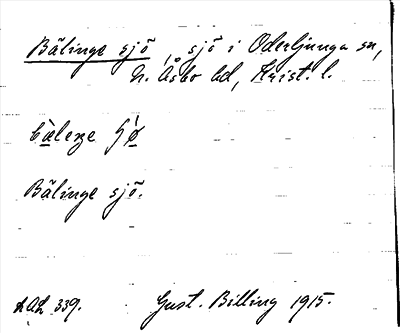 Bälinge sjö, sjö i Oderljunga sn,
N. Åsbo hd, Krist. l.
Bälinge sjö.
LAL 339. Gust. Billing 1915.